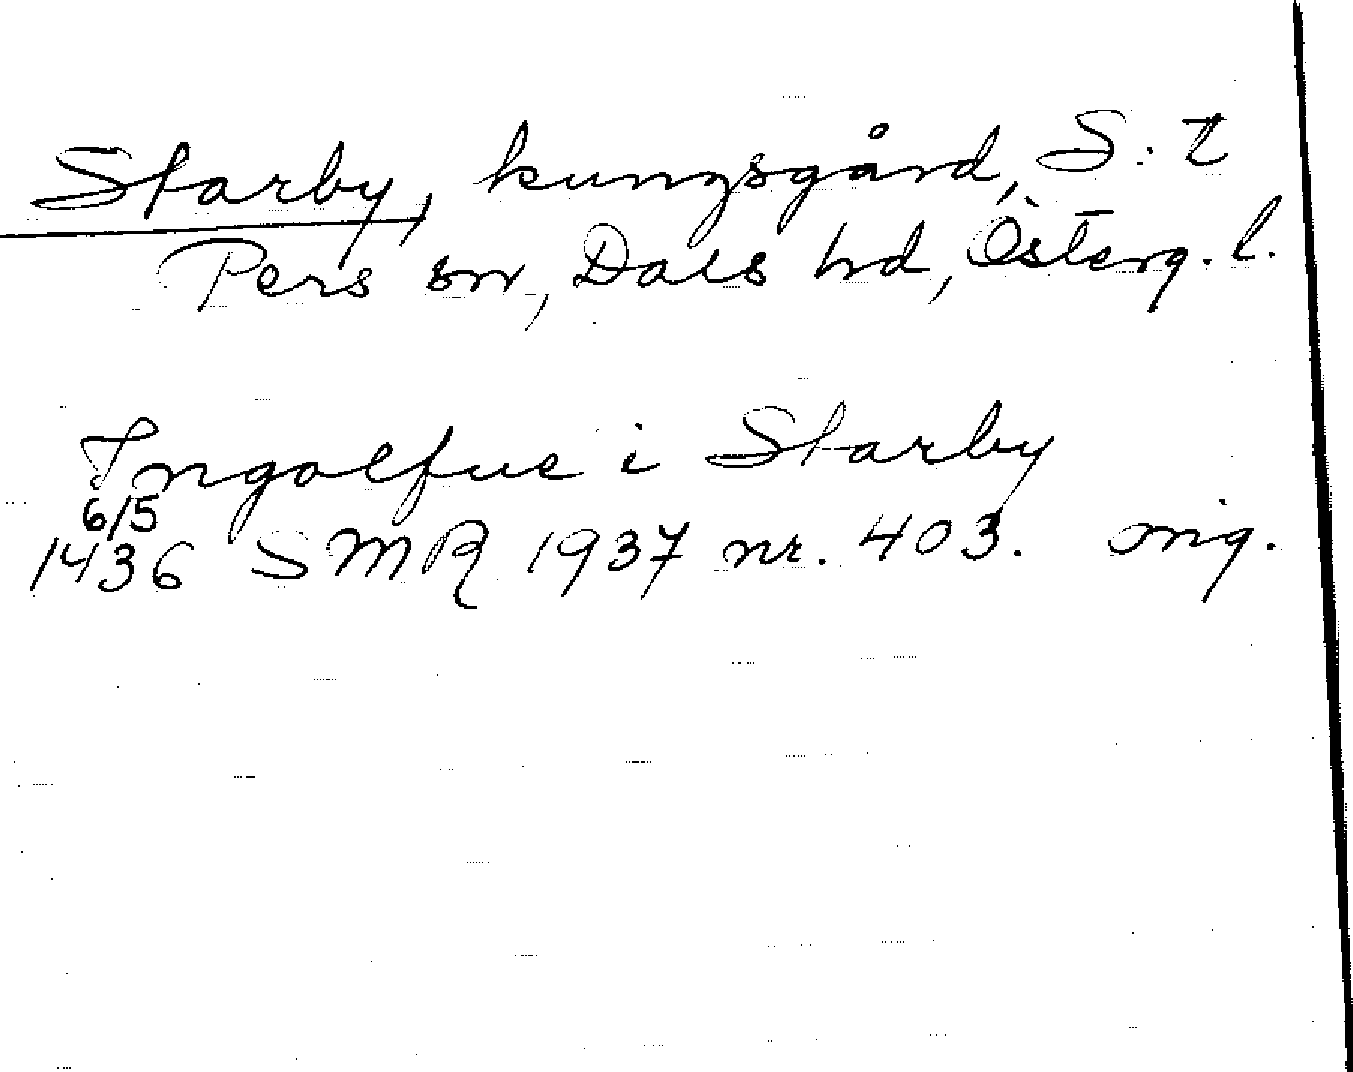 Starby, kungsgård, S:t
Pers sn, Dals hd, Österg. l.
Ingolfue i Starby
6/5
1436 SMR 1937 nr. 403. orig.